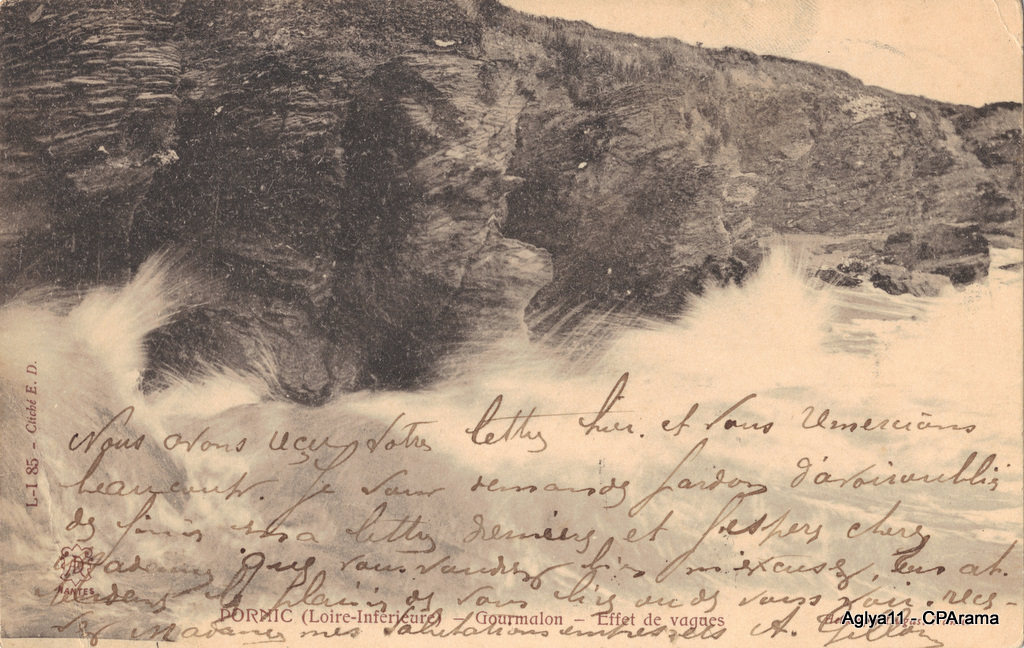 L-I 85 - Cliché E. D.
Nous avons reçu votre lettre hier. et vous remercions
beaucoup. je vous demande pardon d'avoir oublié
de finir ma lettre dernière et j'espère chère
Madame que vous voudrez bien m'excuser, en at-
tendant le plaisir de vous lire ou de vous voir. rece-
NANTES
vez Madame mes salutations empressées A.
PORNIC (Loire-Inférieure) - Gourmalon - Effet de vagues
Aglya11 - CPArama